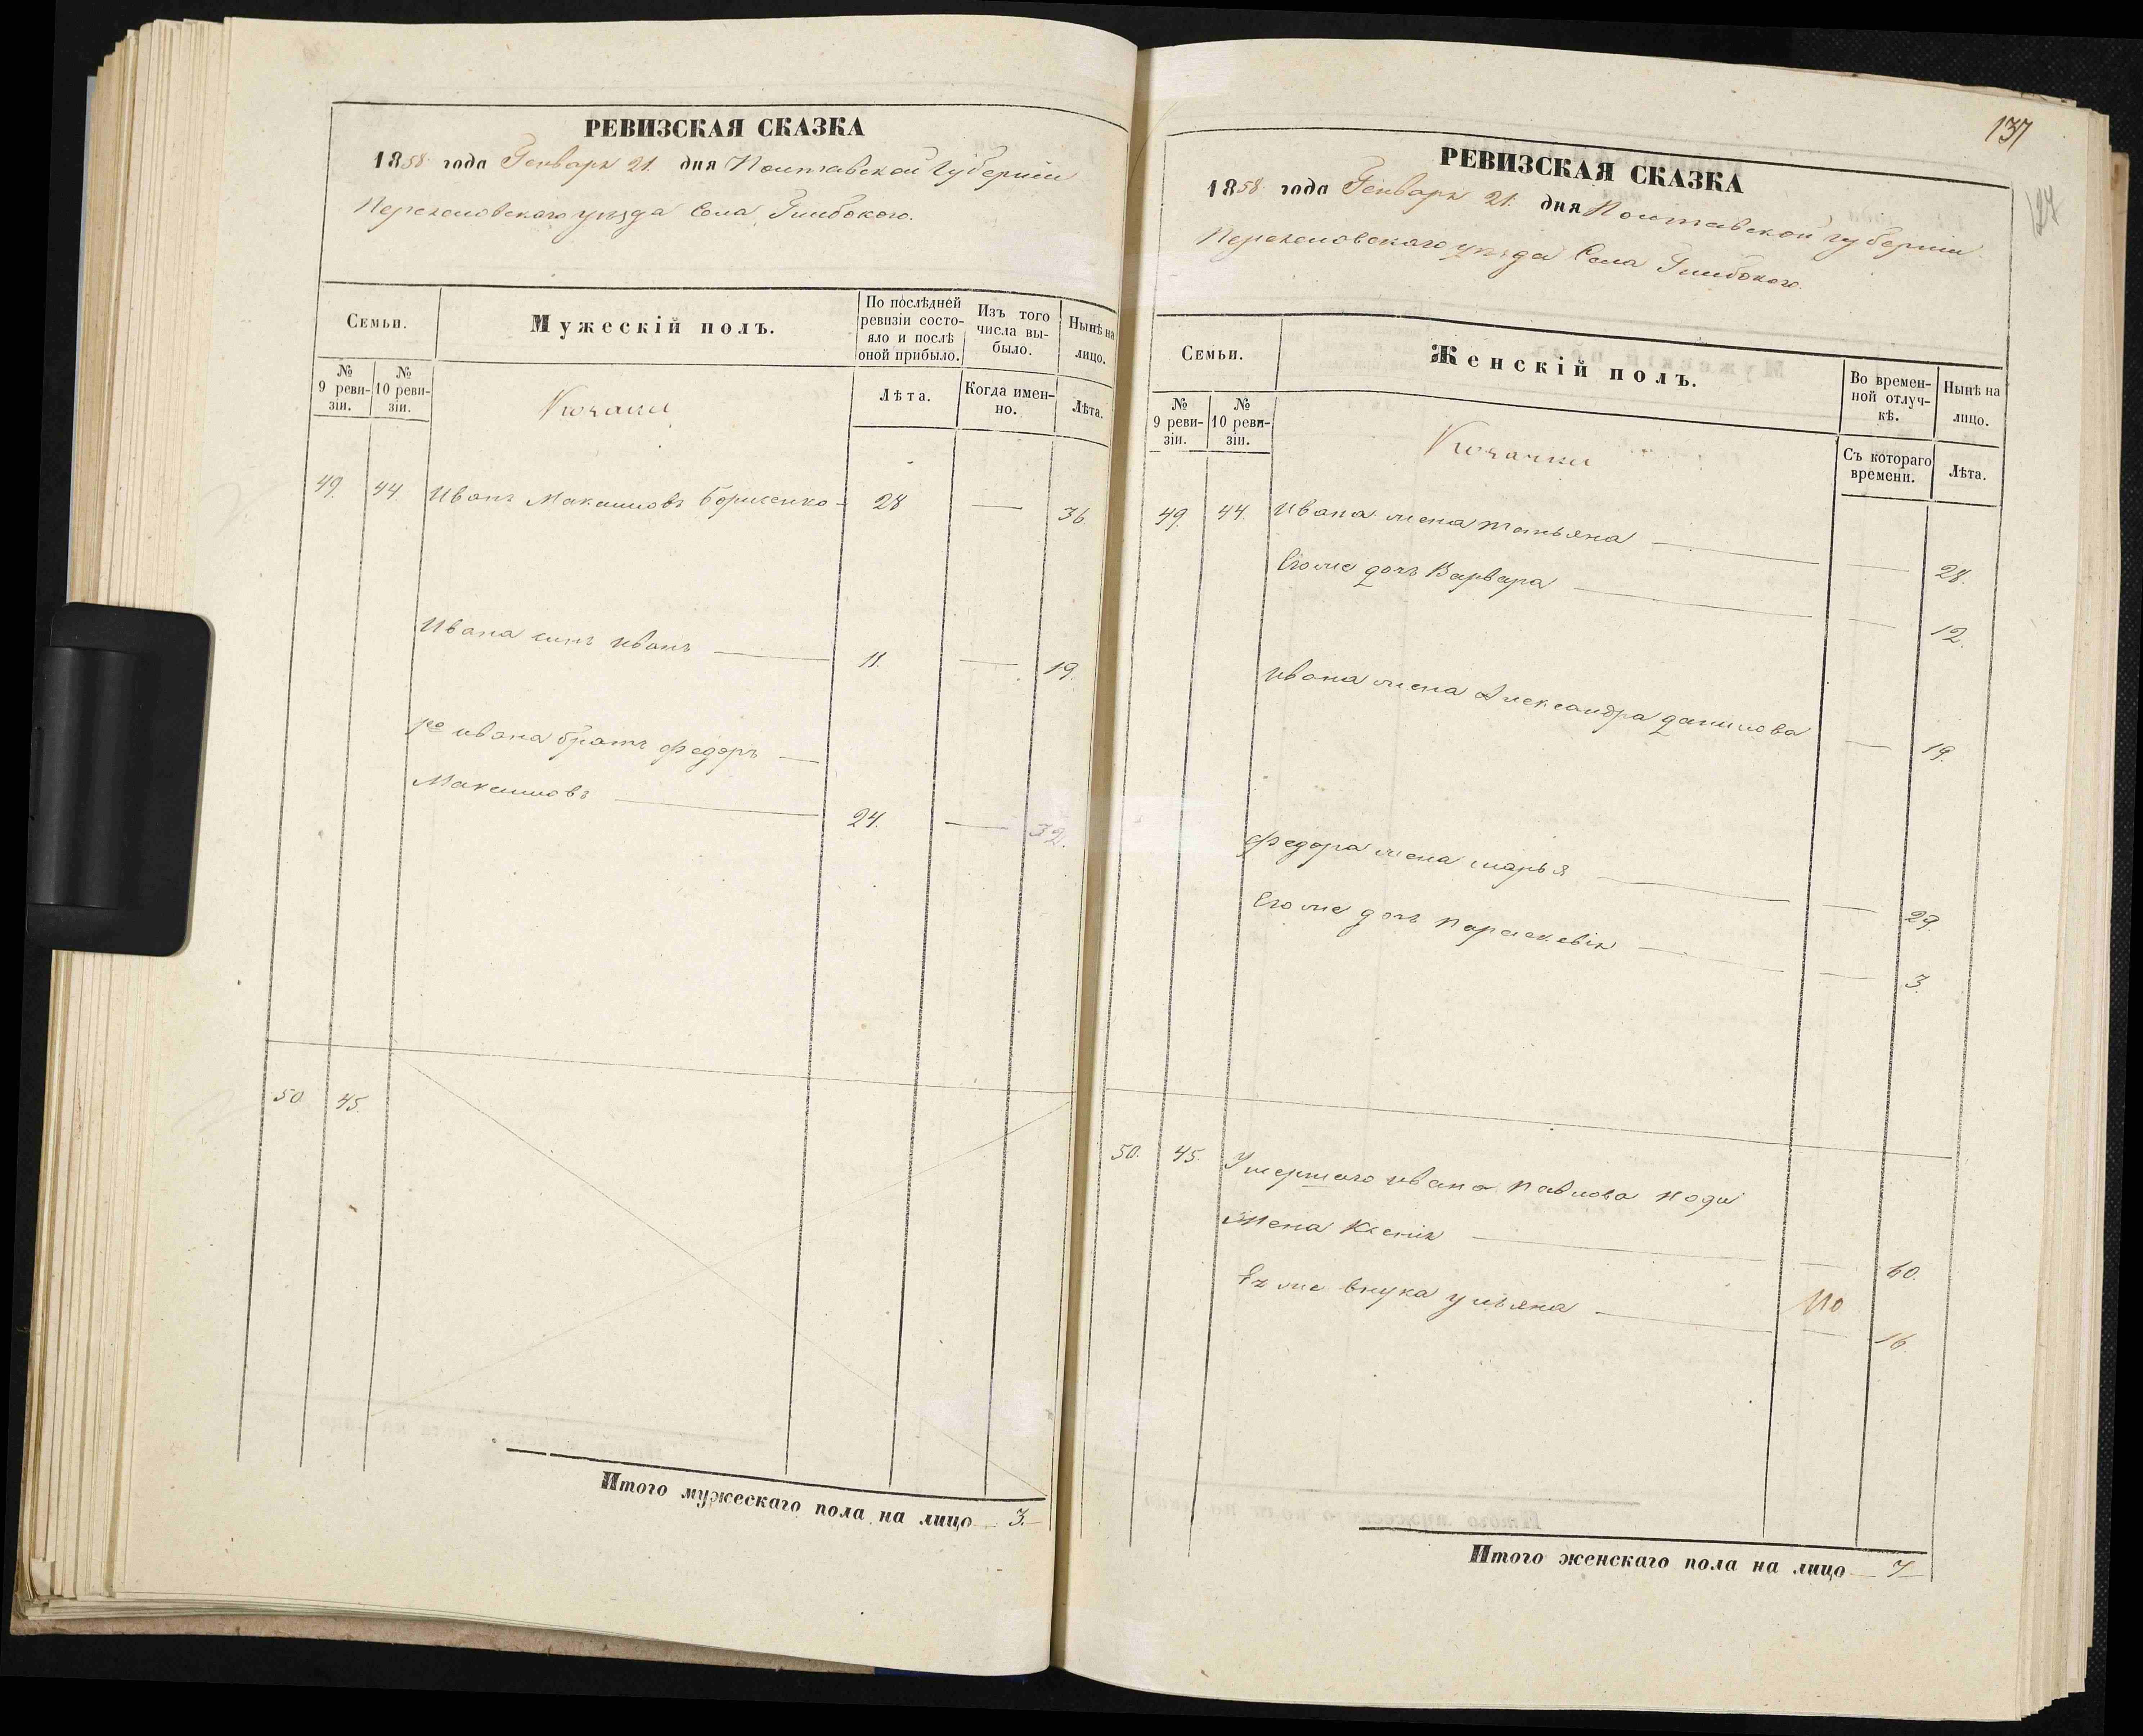 РЕВИЗСКАЯ СКАЗКА
1858 года Генваря 21. дня Полтавской губернии
Переяславскаго уезда Села Глибокого.
Семьи.
Мужескій полъ.
По послѣдней ревизіи состояло и послѣ оной прибыло.
Изъ того числа выбыло.
Нынѣ на лицо.
№ 9 ревизіи.
№ 10 ревизіи.
Козаки
Лѣта.
Когда именно.
Лѣта.
49. 44 Иванъ Максимовъ Борисенко 28 — 36.
Ивана сынъ Иванъ — 11. — 19.
Ивана братъ Федоръ —
Максимовъ — 24. — 32.
50. 45.
Итого мужескаго пола на лицо 3.
137
127
РЕВИЗСКАЯ СКАЗКА
1858 года Генваря 21. дня Полтавской губернии
Переяславскаго уезда Села Глибокого.
Семьи.
Женскій полъ.
Во временной отлучкѣ.
Нынѣ на лицо.
№ 9 ревизіи.
№ 10 ревизіи.
Козачки
Съ котораго времени.
Лѣта.
49. 44. Ивана жена Татьяна — — 28.
Его же дочь Варвара — — 12.
Ивана жена Александра Данилова — 19.
Федора жена Марья — — 29.
Его же дочь Параскевія — — 3.
50. 45. Умершаго Ивана Павлова
Жена Ксенія — — 60.
Ея же внука Ульяна — — 16.
Итого женскаго пола на лицо 7